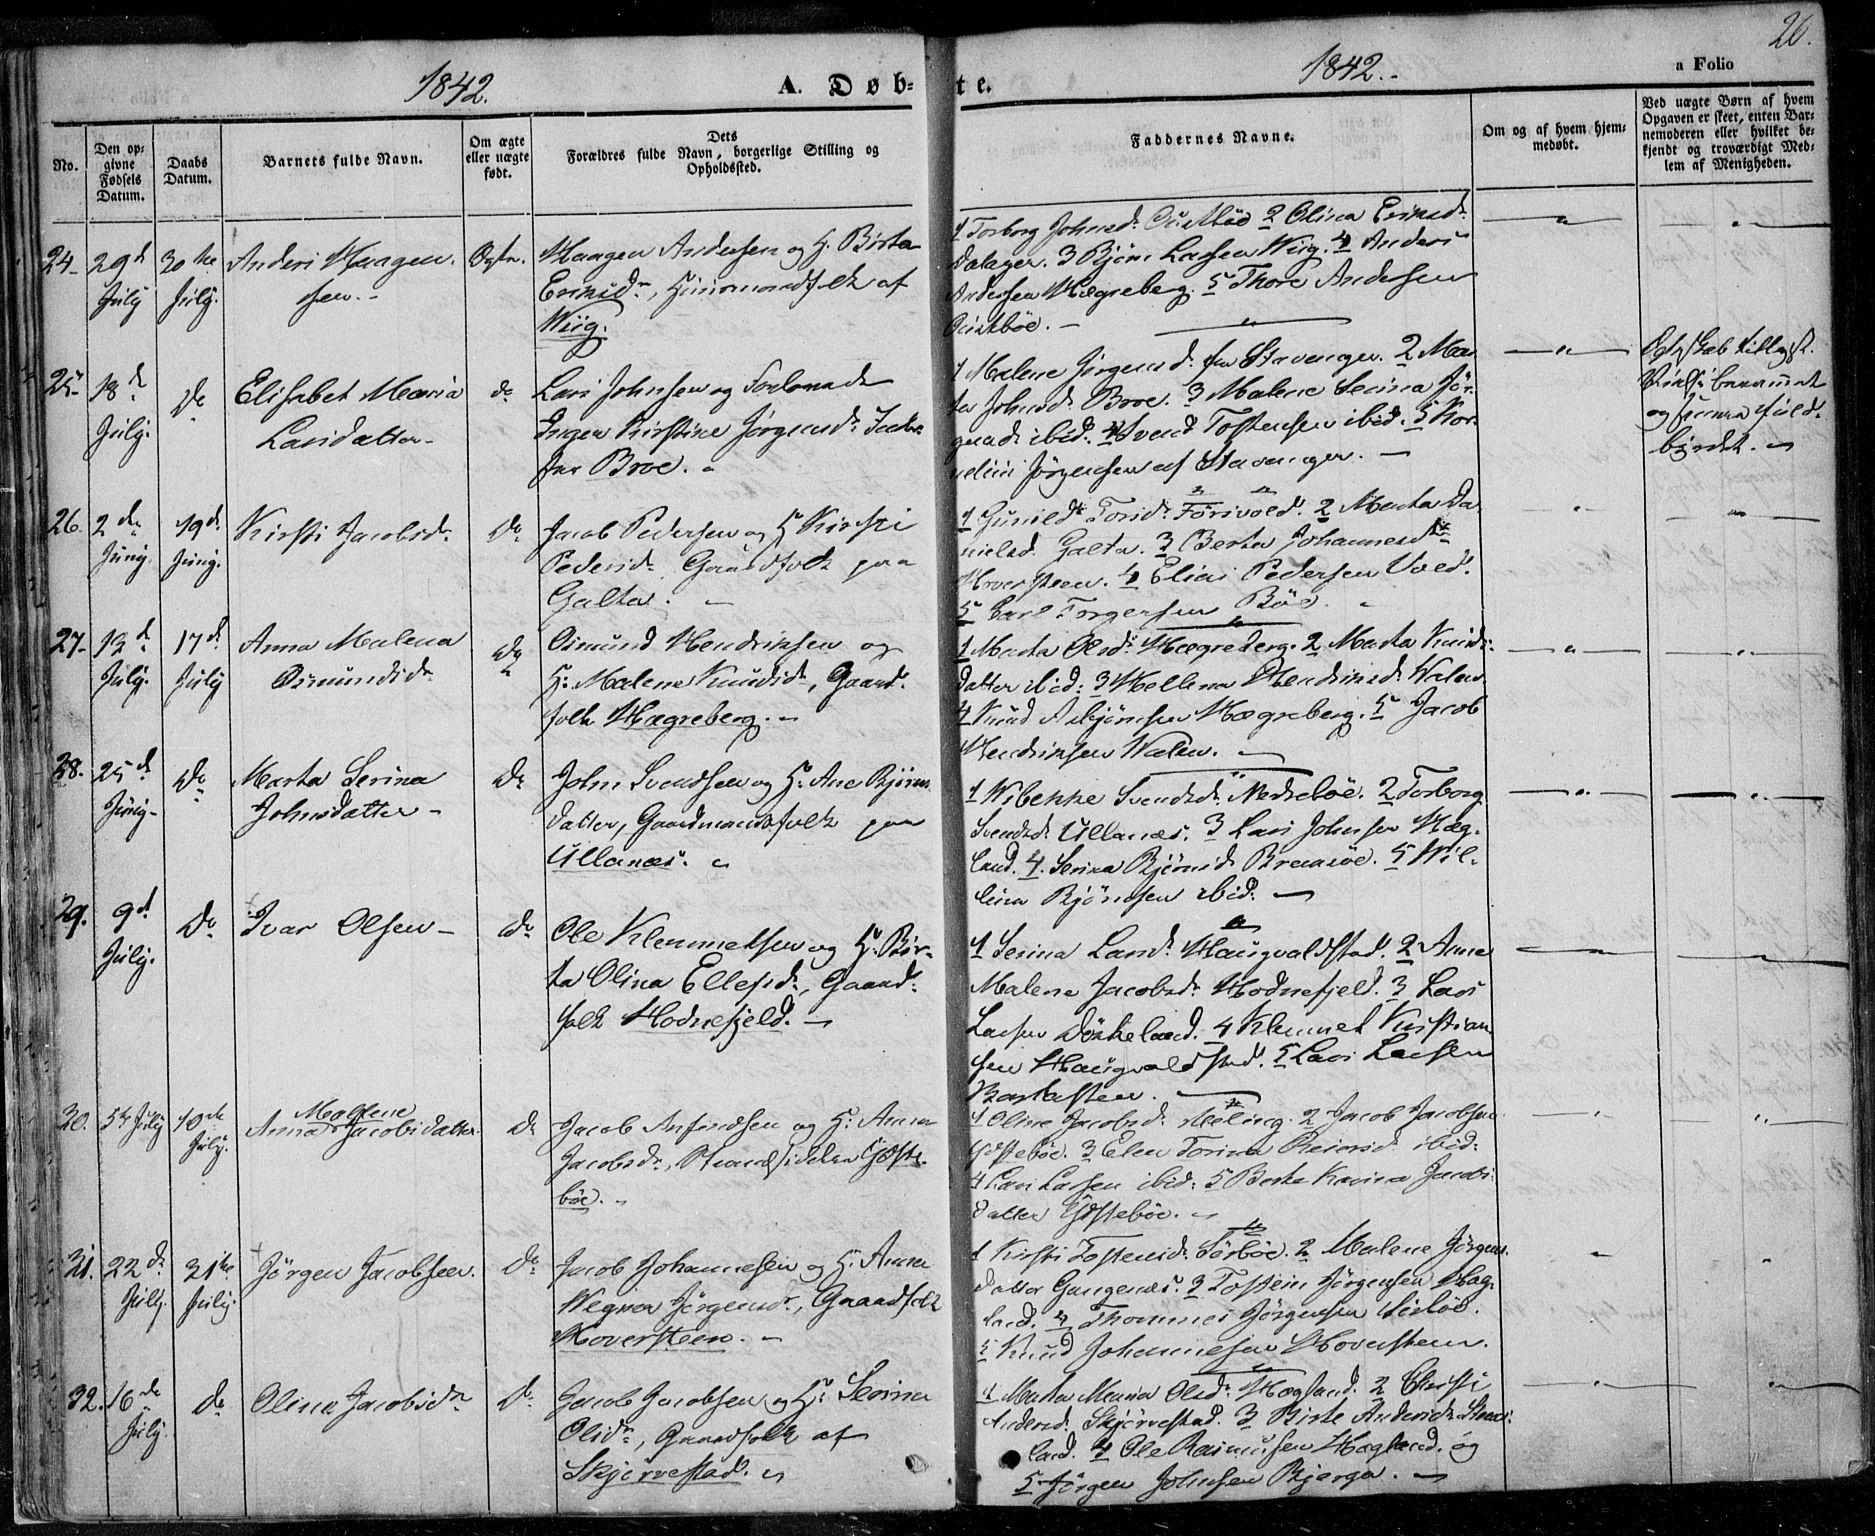 26.
1842.
A. Døb-
te.
1842.
a Folio
No.
Den op-
givne
Fødsels
Datum.
Daabs
Datum.
Barnets fulde Navn.
Om ægte
eller uægte
født.
Dets
Forældres fulde Navn, borgerlige Stilling og
Opholdssted.
Faddernes Navne.
Om og af hvem hjem-
medøbt.
Ved uægte Børn af hvem
Opgaven er skeet, enten Bar-
nemoderen eller hvilket be-
kjendt og troværdigt Med-
lem af Menigheden.
24.
29d
July
30te
July.
Anders Haagen
sen.
Ægte.
Haagen Andersen og H. Birta
Eriksdr, Huusmandsfolk af
Wiig.
1 Torborg Johnsdr 2 Olina Eriksdr
Dalager. 3 Bjørn Larsen Wiig. 4 Anders
Andersen Hægreberg. 5 Thore Andersen
Austbøe.
25.
18d
July.
Do
Elisabet Maria
Larsdatter
do
Lars Johnsen og Forlovede
Inger Kirstine Jørgensdr
Broe.
1 Malene Jørgensdr fra Stavanger. 2 Mar
ta Johnsdr Broe. 3 Malene Serina Jør-
gensdr ibid. 4 Svend Tostensen ibid. 5 Kor-
nelius Jørgensen af Stavanger.
Ægteskab tillyst.
og
byrdet.
26.
2den
Juny.
19d
Juny.
Kirsti Jacobsdr
Do
Jacob Pedersen og H Kirsti
Pedersdr Gaardfolk paa
Galta.
1 Gunild Torisdr Førivold. 2 Marta Da
nielsd. Galta. 3 Berta Johannesdr
Hoversteen. 4 Elias Pedersen Vold.
5 Carl Torgersen Bøe.
27.
12d
July.
17d
July
Anna Malena
Osmundsdr
Do
Osmund Hendriksen og
H: Malene Knudsdr, Gaard-
folk Hægreberg.
1 Marta Olsdr Hægreberg. 2 Marta Knuds-
datter ibid: 3 Hellena Hendriksdr Walen
4 Knud Asbjørnsen Hægreberg. 5 Jacob
Hendriksen Walen.
28.
25d
Juny
Do
Marta Serina
Johnsdatter
Do
John Svendsen og H: Ane Bjørns
datter, Gaardmandsfolk paa
Ullanæs.
1 Wibekke Svendsdr Nedrebøe. 2 Torborg
Svendsdr Ullanæs. 3 Lars Johnsen Hæg-
land. 4. Serina Bjørnsdr Bremsøe. 5 Wil-
lum Bjørnsen ibid.
29.
9d
July.
Do
Ivar Olsen
Do
Ole Klemmetsen og H. Bir-
ta Olina Ellefsdr, Gaard-
folk Hodnefjeld.
1 Serina Larsdr Haugvaldstad. 2 Anne
Malene Jacobsdr Hodnefjeld. 3 Lars
Larsen Døskeland. 4 Klemmet Kristian
sen Haugvaldstad. 5 Lars Larsen
30.
5te July
10de
July.
Malene
Anna Jacobsdatter
Do
Jacob Anfindsen og H: Anna
Jacobsdr, Strandsiddere Østre-
bøe.
1 Oline Jacobsdr Meling. 2 Jacob Jacobsen
Østebøe. 3 Elen Torina Reiersdr ibid:
4 Lars Larsen ibid: 5 Berta Karina Jacobs-
datter Østebøe.
31.
22d
July.
31te
July.
Jørgen Jacobsen.
Do
Jacob Johannesen og H. Anna
Wegner Jørgensdr, Gaardfolk
Hoversteen.
1 Kirsti Tostensdr Sørbøe. 2 Malene Jørgens
datter Gangenæs. 3 Tostein Jørgensen Hæg-
land. 4 Thommes Jørgensen Sørbøe.
5 Knud Johannesen Hoversteen.
32.
16de
July.
Do
Oline Jacobsdr
Do
Jacob Jacobsen og H: Serina
Olsdr, Gaardfolk af
Skjørvestad.
1 Marta Maria Olsdr Hægland. 2 Christi
Andersdr Skjørvestad. 3 Birte Andersdr
land. 4 Ole Rasmusen Hægland. og
5 Jørgen Johnsen Bjerga.